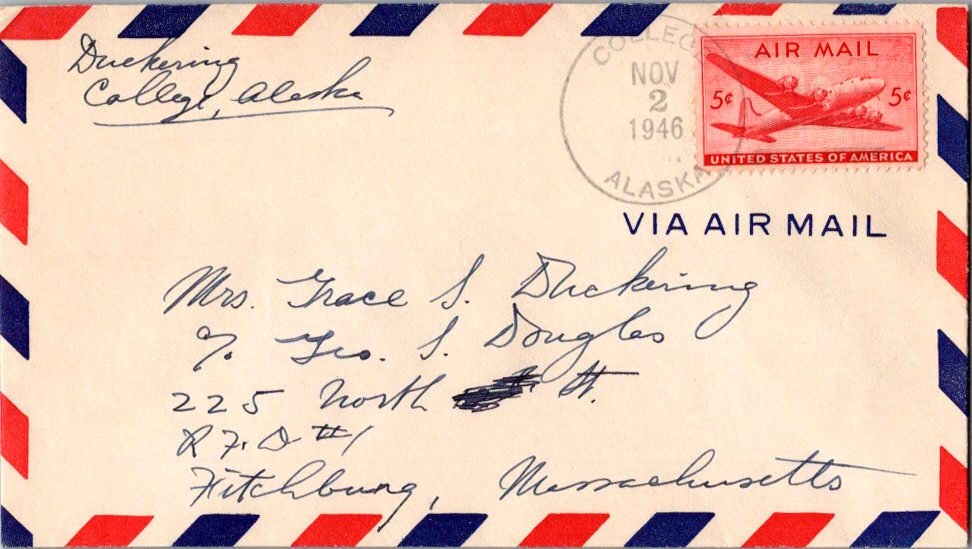 Duckering
College, Alaska
COLLEGE
NOV
2
1946
ALASKA
AIR MAIL
5¢ 5¢
UNITED STATES OF AMERICA
VIA AIR MAIL
Mrs. Grace S. Duckering
℅ Geo. S. Douglas
225 North St.
R F. D #1
Fitchburg, Massachusetts